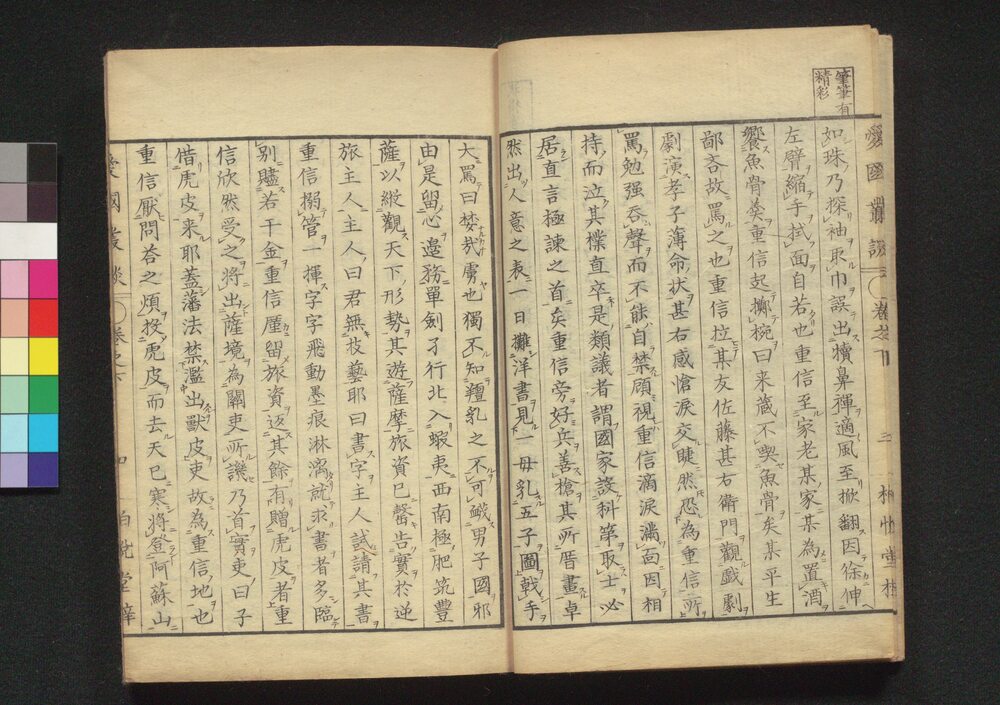 筆筆有
精彩
如珠乃探袖取巾誤出犢鼻褌適風至掀翻因徐伸
左臂縮手拭面自若也重信至家老某家某為置酒
饗魚骨羮重信起擲椀曰来箴不喫魚骨矣某平生
鄙吝故罵之也重信拉其友佐藤甚右衛門觀戲劇
劇演孝子薄命状甚右感愴淚交睫然恐為重信所
罵勉强呑聲而不能自禁顧視重信滴淚滿面因相
持而泣其樸直卒是類議者謂國家設科第取士必
居直言極諫之首矣重信旁好兵善槍其所厝畫卓
然出人意之表一日攤洋書見一母乳五子圖戟手
大罵曰婪哉虜也獨不知羶乳之不可衊男子國邪
由是留心邊務單劍孑行北入蝦夷西南極肥筑豐
薩以縱觀天下形勢其遊薩摩旅資已罄告實於逆
旅主人主人曰君無技藝耶曰書字主人試請其書
重信搦管一揮字字飛動墨痕淋漓就求書者多臨
別贐若干金重信厪留旅資返其餘有贈虎皮者重
信欣然受之將出薩境為關吏所譏乃首實吏曰子
借虎皮来耶蓋藩法禁濫出獸皮吏故為重信地也
重信厭問答之煩投虎皮而去天已寒將登阿蘇山